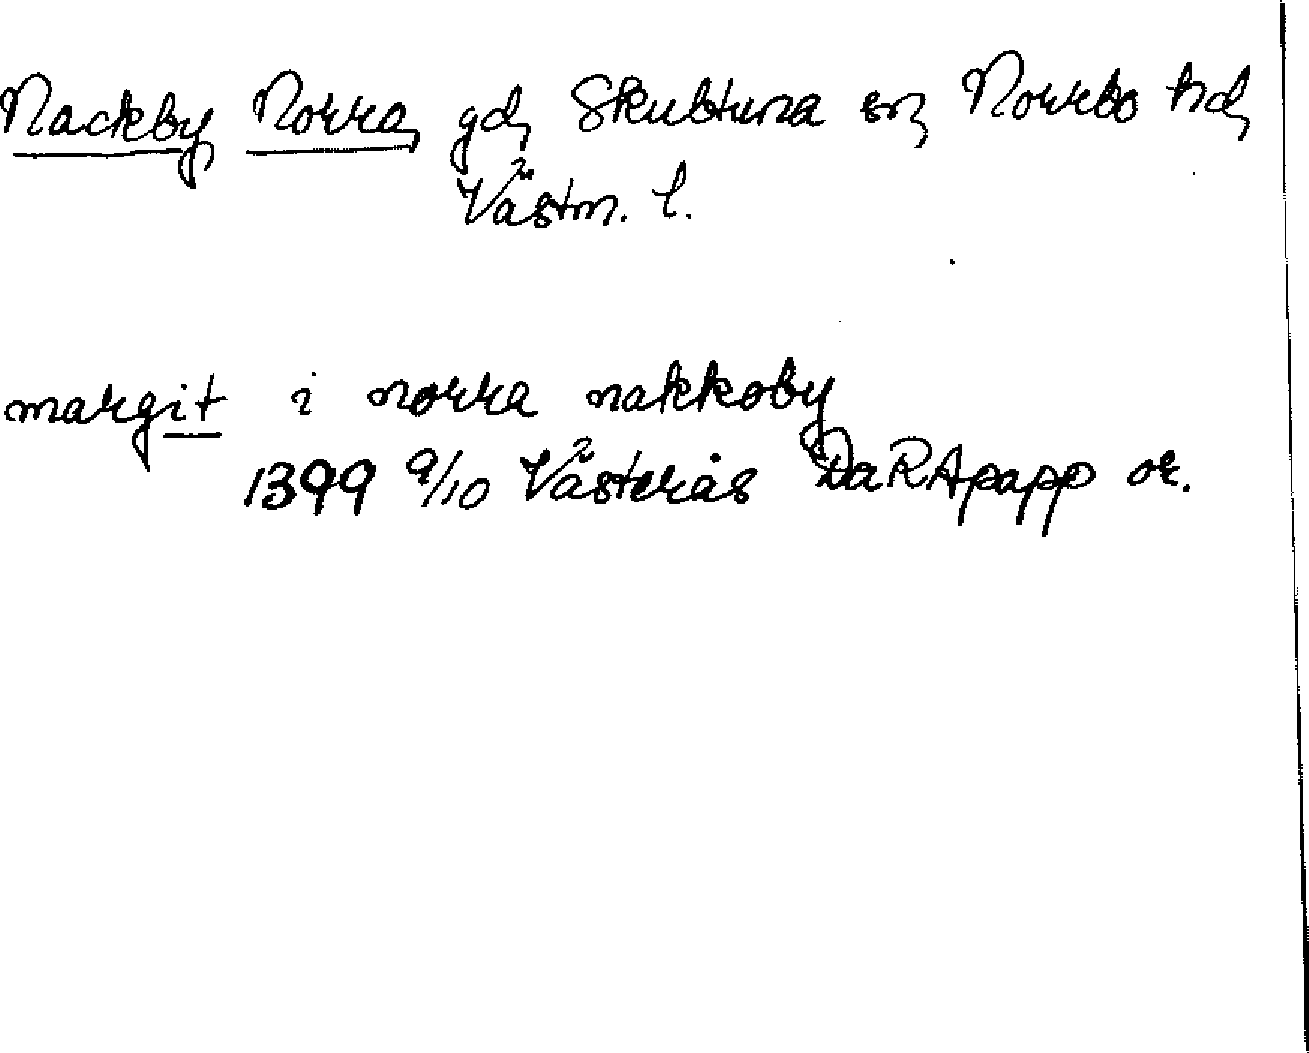 Nackby Norra, gd, Skultuna sn, Norrbo hd,
Västm. l.
margit i norra nakkoby
1399 9/10 Västerås DaRApapp or.